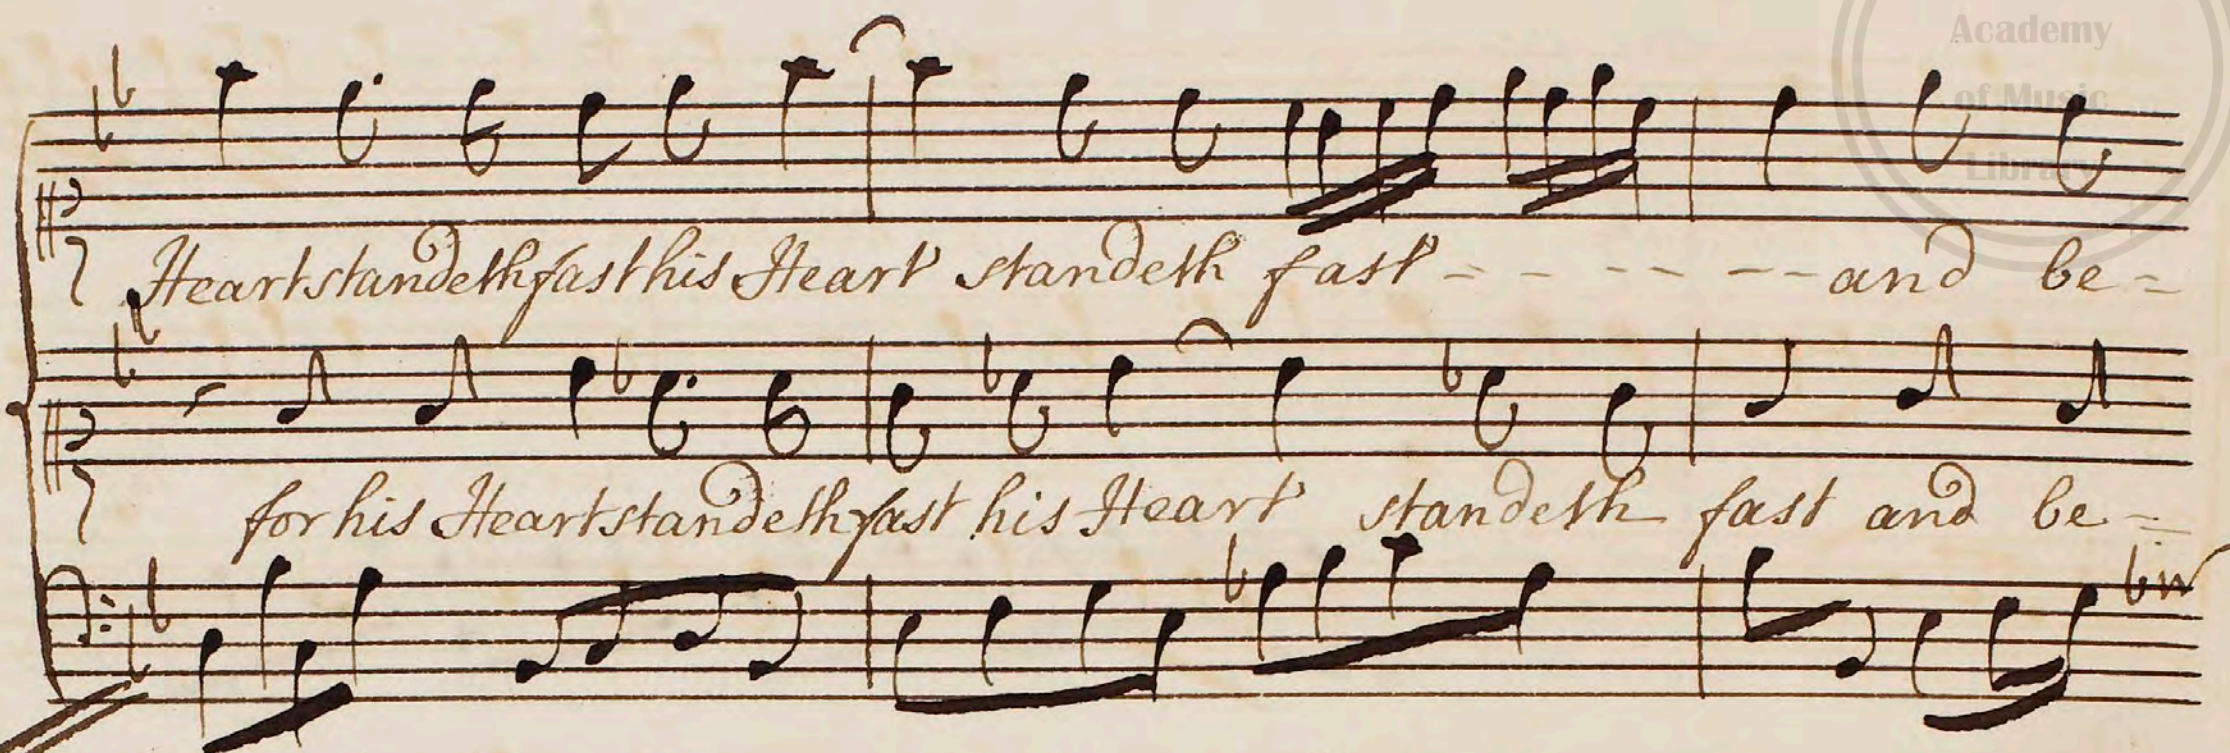 Academy
of Music
Library
Heart standeth fast his Heart standeth fast - - - - - - - and be =
for his Heart standeth fast his Heart standeth fast and be - =